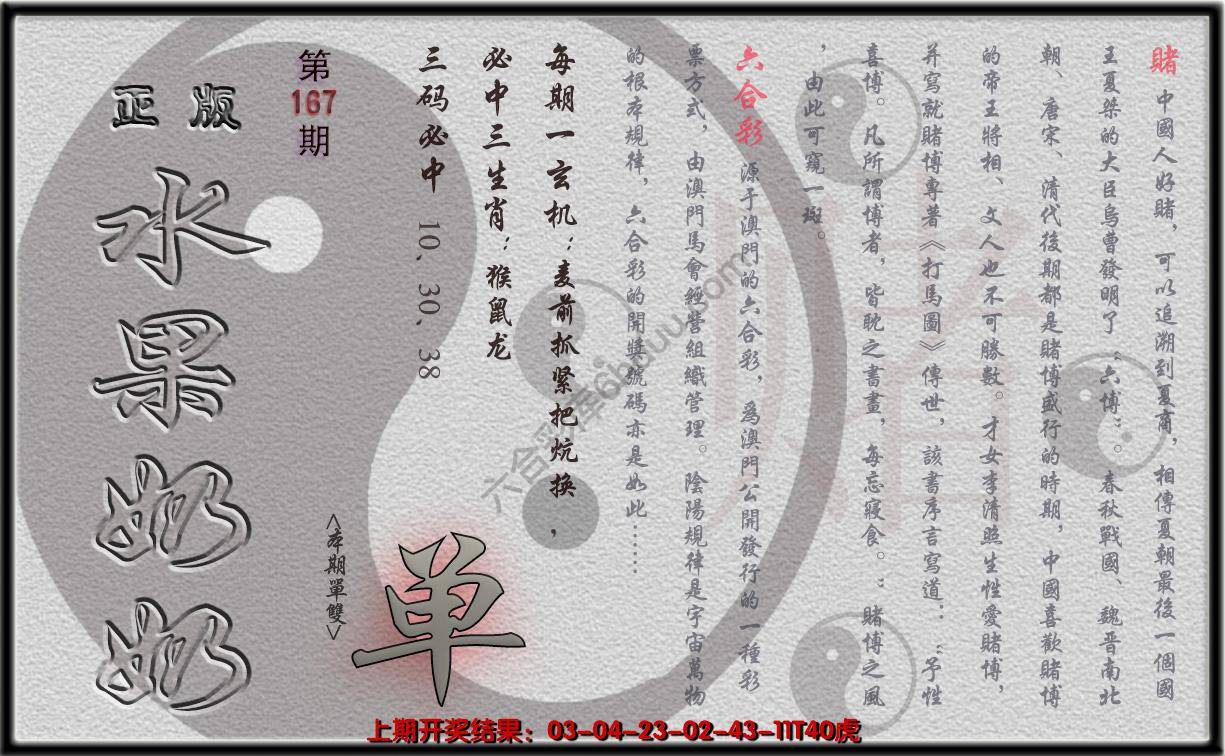 賭 中國人好賭，可以追溯到夏商，相傳夏朝最後一個國
王夏桀的大臣烏曹發明了“六博”。春秋戰國、魏晋南北
朝、唐宋、清代後期都是賭博盛行的時期，中國喜歡賭博
的帝王將相、文人也不可勝數。才女李清照生性愛賭博，
并寫就賭博專著《打馬圖》傳世，該書序言寫道：“予性
喜博。凡所謂博者，皆耽之書畫，每忘寢食。”賭博之風
，由此可窺一斑。
六合彩 源于澳門的六合彩，爲澳門公開發行的一種彩
票方式，由澳門馬會經營組織管理。陰陽規律是宇宙萬物
的根本規律，六合彩的開獎號碼亦是如此……
每期一玄机：麦前抓紧把炕换，
必中三生肖：猴鼠龙
三码必中 10、30、38
第
167
期
正版
水果奶奶
<本期單雙>
单
賭
六合彩库6htuu.com
上期开奖结果：03-04-23-02-43-11T40虎